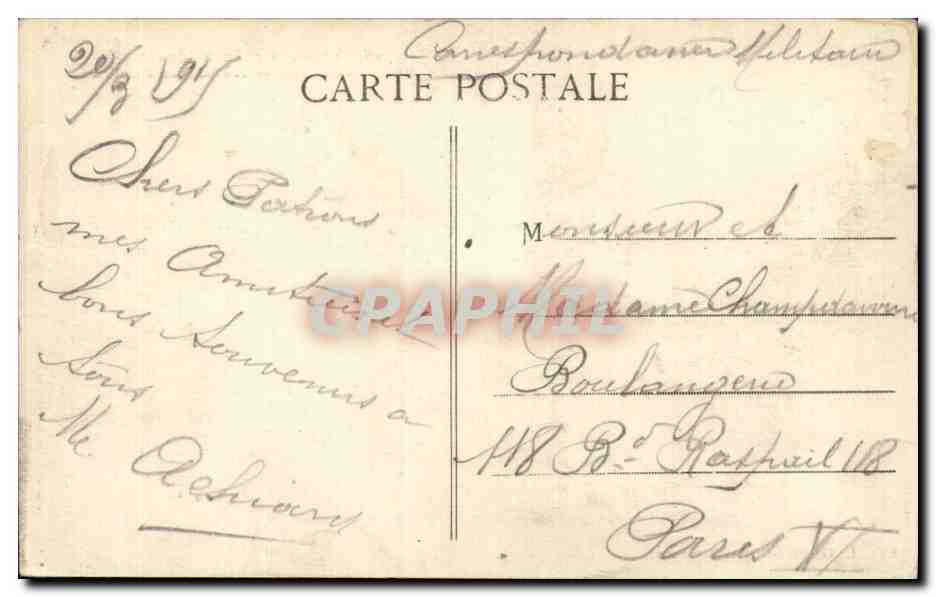 Correspondance Militaire
20/3 1915
CARTE POSTALE
Chers Patrons
mes Amitiés et
bons Souvenirs a
tous
Me Achiard
Monsieur et
Madame Champdavoine
Boulangerie
118 Bd Raspail 118
Paris VI
CPAPHIL